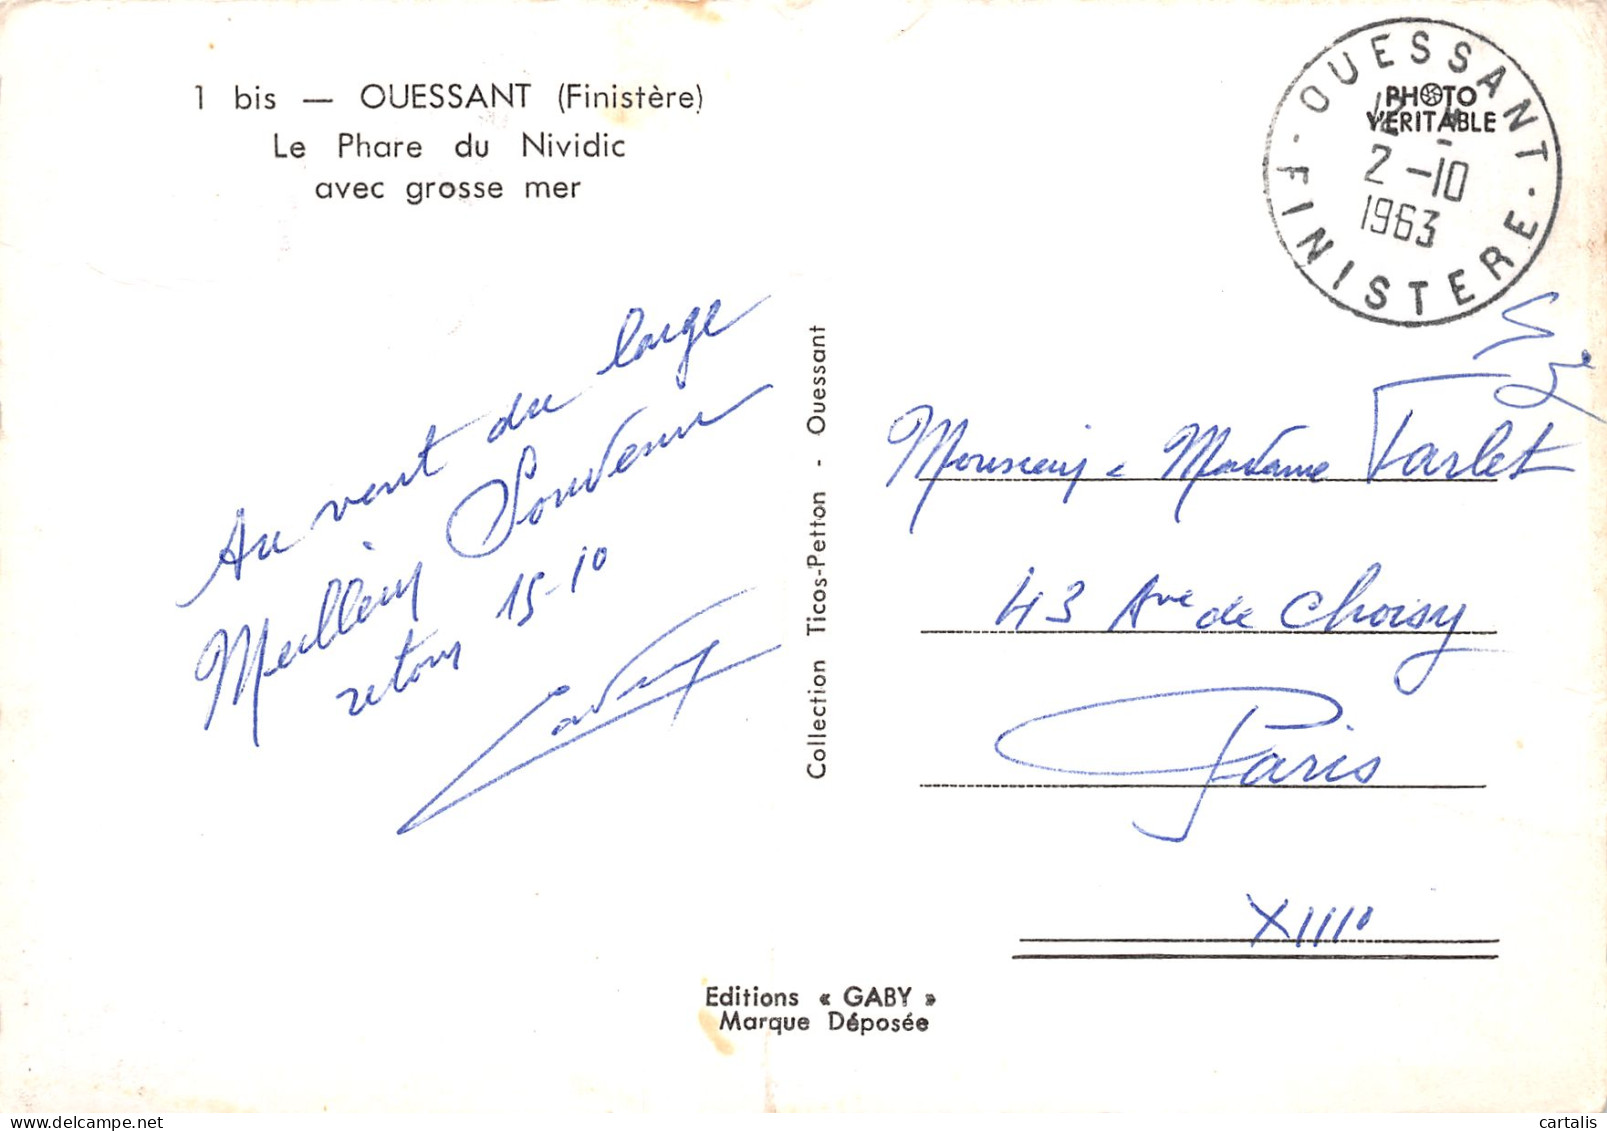 1 bis — OUESSANT (Finistère)
Le Phare du Nividic
avec grosse mer
Au vent du large
Meilleur Souvenir
retour 15-10
Collection Ticos-Petton - Ouessant
OUESSANT
PHOTO
VERITABLE
2-10
1963
FINISTERE
Monsieur e Madame Tarlet
43 Ave de Choisy
Paris
XIII
Editions « GABY »
Marque Déposée
cartalis